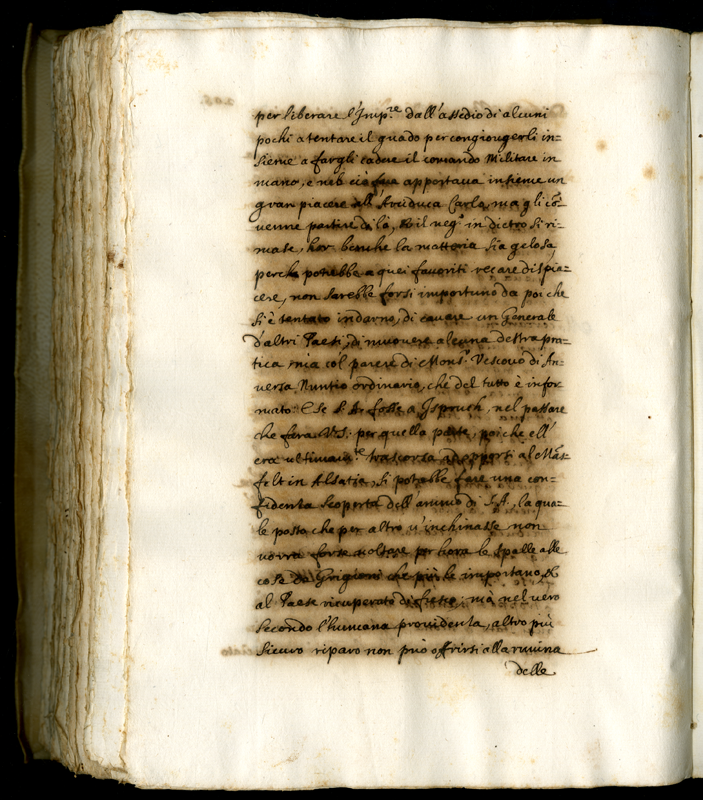 per liberare l'Imp.re dall'assedio di alcuni
pochi a tentare il guado per congiongerli in=
sieme a fargli cadere il comando Militare in
mano, e nel ciò fare apportaua insieme un
gran piacere all'Arciduca Carlo, ma gli con=
uenne partire di là, et il neg.o in dietro si ri=
mase, hor benche la materia sia gelosa
perche potrebbe a quei fauoriti recare dispia=
cere, non sarebbe forsi importuno da poi che
si è tentato indarno, di cauare un Generale
d'altri Paesi, di muouere alcuna destra pra=
tica, mà col parere di Mons.r Vescouo di An=
uersa Nuntio ordinario, che del tutto è infor
mato. E se S. A. fosse a Ispruch, nel passare
che farà V. S. per quella parte, poiche ell'
era ultimam.te trascorsa ad opporsi al Mans=
felt in Alsatia, si potrebbe fare una con=
fidenta scoperta dell'animo di S. A., la qua=
le posto che per altro u'inchinasse non
uorrà forse uoltare per hora le spalle alle
cose de Grigioni che più le importano, et
al Paese ricuperato di fresco; mà nel uero
secondo l'humana prouidenta, altro più
sicuro riparo non può offrirsi alla ruuina
delle